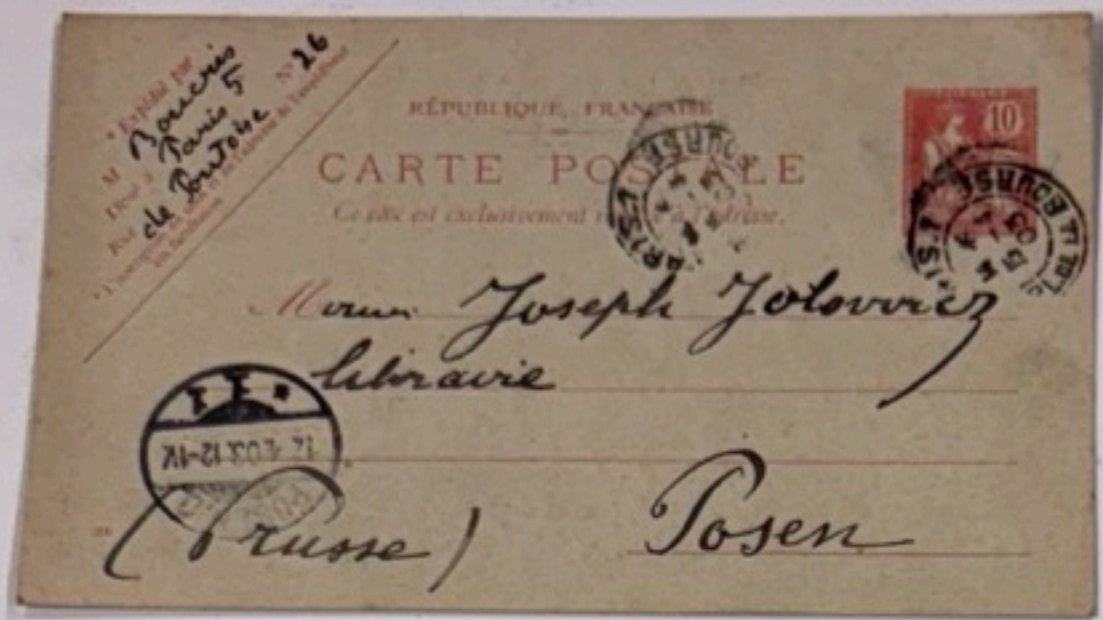 * Expédié par
M Boucris
Paris 5
Rue de Pontoise N° 26
RÉPUBLIQUE FRANÇAISE
CARTE POSTALE
Ce côté est exclusivement réservé à l'adresse.
10
PARIS.1 BOURSE
PARIS.1 BOURSE
Joseph Jolowicz
librairie
Posen
(Prusse)
4.03.12-1V.